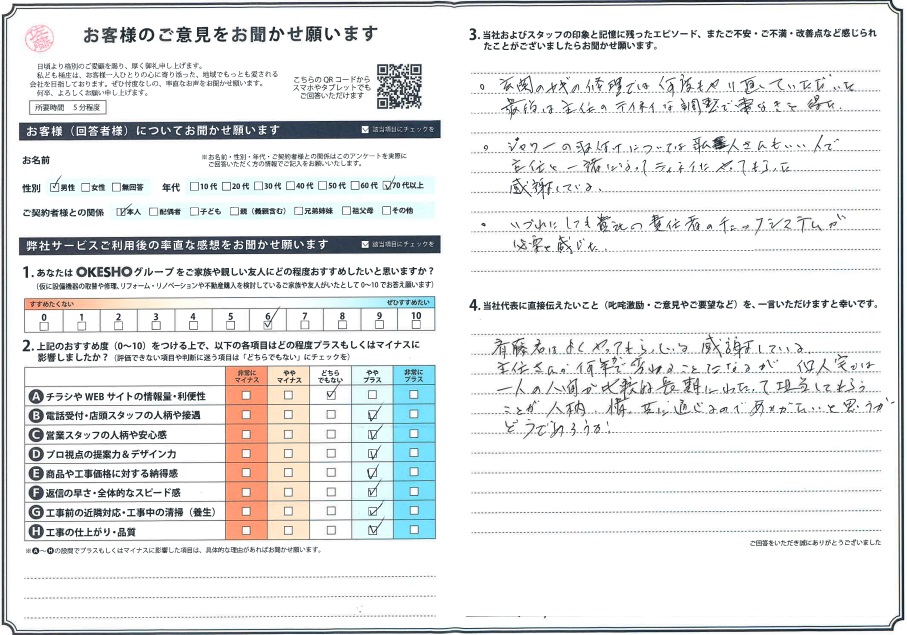 お客様のご意見をお聞かせ願います
日頃より格別のご愛顧を賜り、厚く御礼申し上げます。
私ども桶庄は、お客様一人ひとりの心に寄り添った、地域でもっとも愛される
会社を目指しております。ぜひ忖度なしの、率直なお声をお聞かせください。
何卒、よろしくお願い申し上げます。
所要時間 5分程度
こちらのQRコードから
スマホやタブレットでも
ご回答いただけます
お客様（回答者様）についてお聞かせ願います
該当項目にチェックを
お名前
※お名前・性別・年代・ご契約者様との関係はこのアンケートを実際に
ご回答いただく方の情報でご記入をお願いいたします。
性別 男性 女性 無回答 年代 10代 20代 30代 40代 50代 60代 70代以上
ご契約者様との関係 本人 配偶者 子ども 親（義親含む） 兄弟姉妹 祖父母 その他
弊社サービスご利用後の率直な感想をお聞かせ願います
該当項目にチェックを
1. あなたは OKESHOグループをご家族や親しい友人にどの程度おすすめしたいと思いますか？
（仮に設備機器の取替や修理、リフォーム・リノベーションや不動産購入を検討しているご家族や友人がいたとして0～10でお答え願います）
すすめたくない ぜひすすめたい
0 1 2 3 4 5 6 7 8 9 10
2. 上記のおすすめ度（0～10）をつける上で、以下の各項目はどの程度プラスもしくはマイナスに
影響しましたか？（評価できない項目や判断に迷う項目は「どちらでもない」にチェックを）
非常にマイナス ややマイナス どちらでもない ややプラス 非常にプラス
A チラシやWEBサイトの情報量・利便性
B 電話受付・店頭スタッフの人柄や接遇
C 営業スタッフの人柄や安心感
D プロ視点の提案力＆デザイン力
E 商品や工事価格に対する納得感
F 返信の早さ・全体的なスピード感
G 工事前の近隣対応・工事中の清掃（養生）
H 工事の仕上がり・品質
※A～Hの設問でプラスもしくはマイナスに影響した項目は、具体的な理由があればお聞かせ願います。
3. 当社およびスタッフの印象と記憶に残ったエピソード、またご不安・ご不満・改善点など感じられ
たことがございましたらお聞かせ願います。
の修理では何度もやり直していただいた
最後は主任のテイネイな調整で
の取付けについては 人さんもいい人で
主任と一緒になって やってもらった
感謝している。
いづれにしても貴社の責任者のチェックシステムが
必要と感じた。
4. 当社代表に直接伝えたいこと（叱咤激励・ご意見やご要望など）を、一言いただけますと幸いです。
斉藤君はよくやってもらっている 感謝している
主任さんが何年かで変わることになるが
一人の人間が比較的長期にわたって担当してもらう
ことが人柄、 に通じるのでありがたいと思うが
どうであろうか！
ご回答をいただき誠にありがとうございました